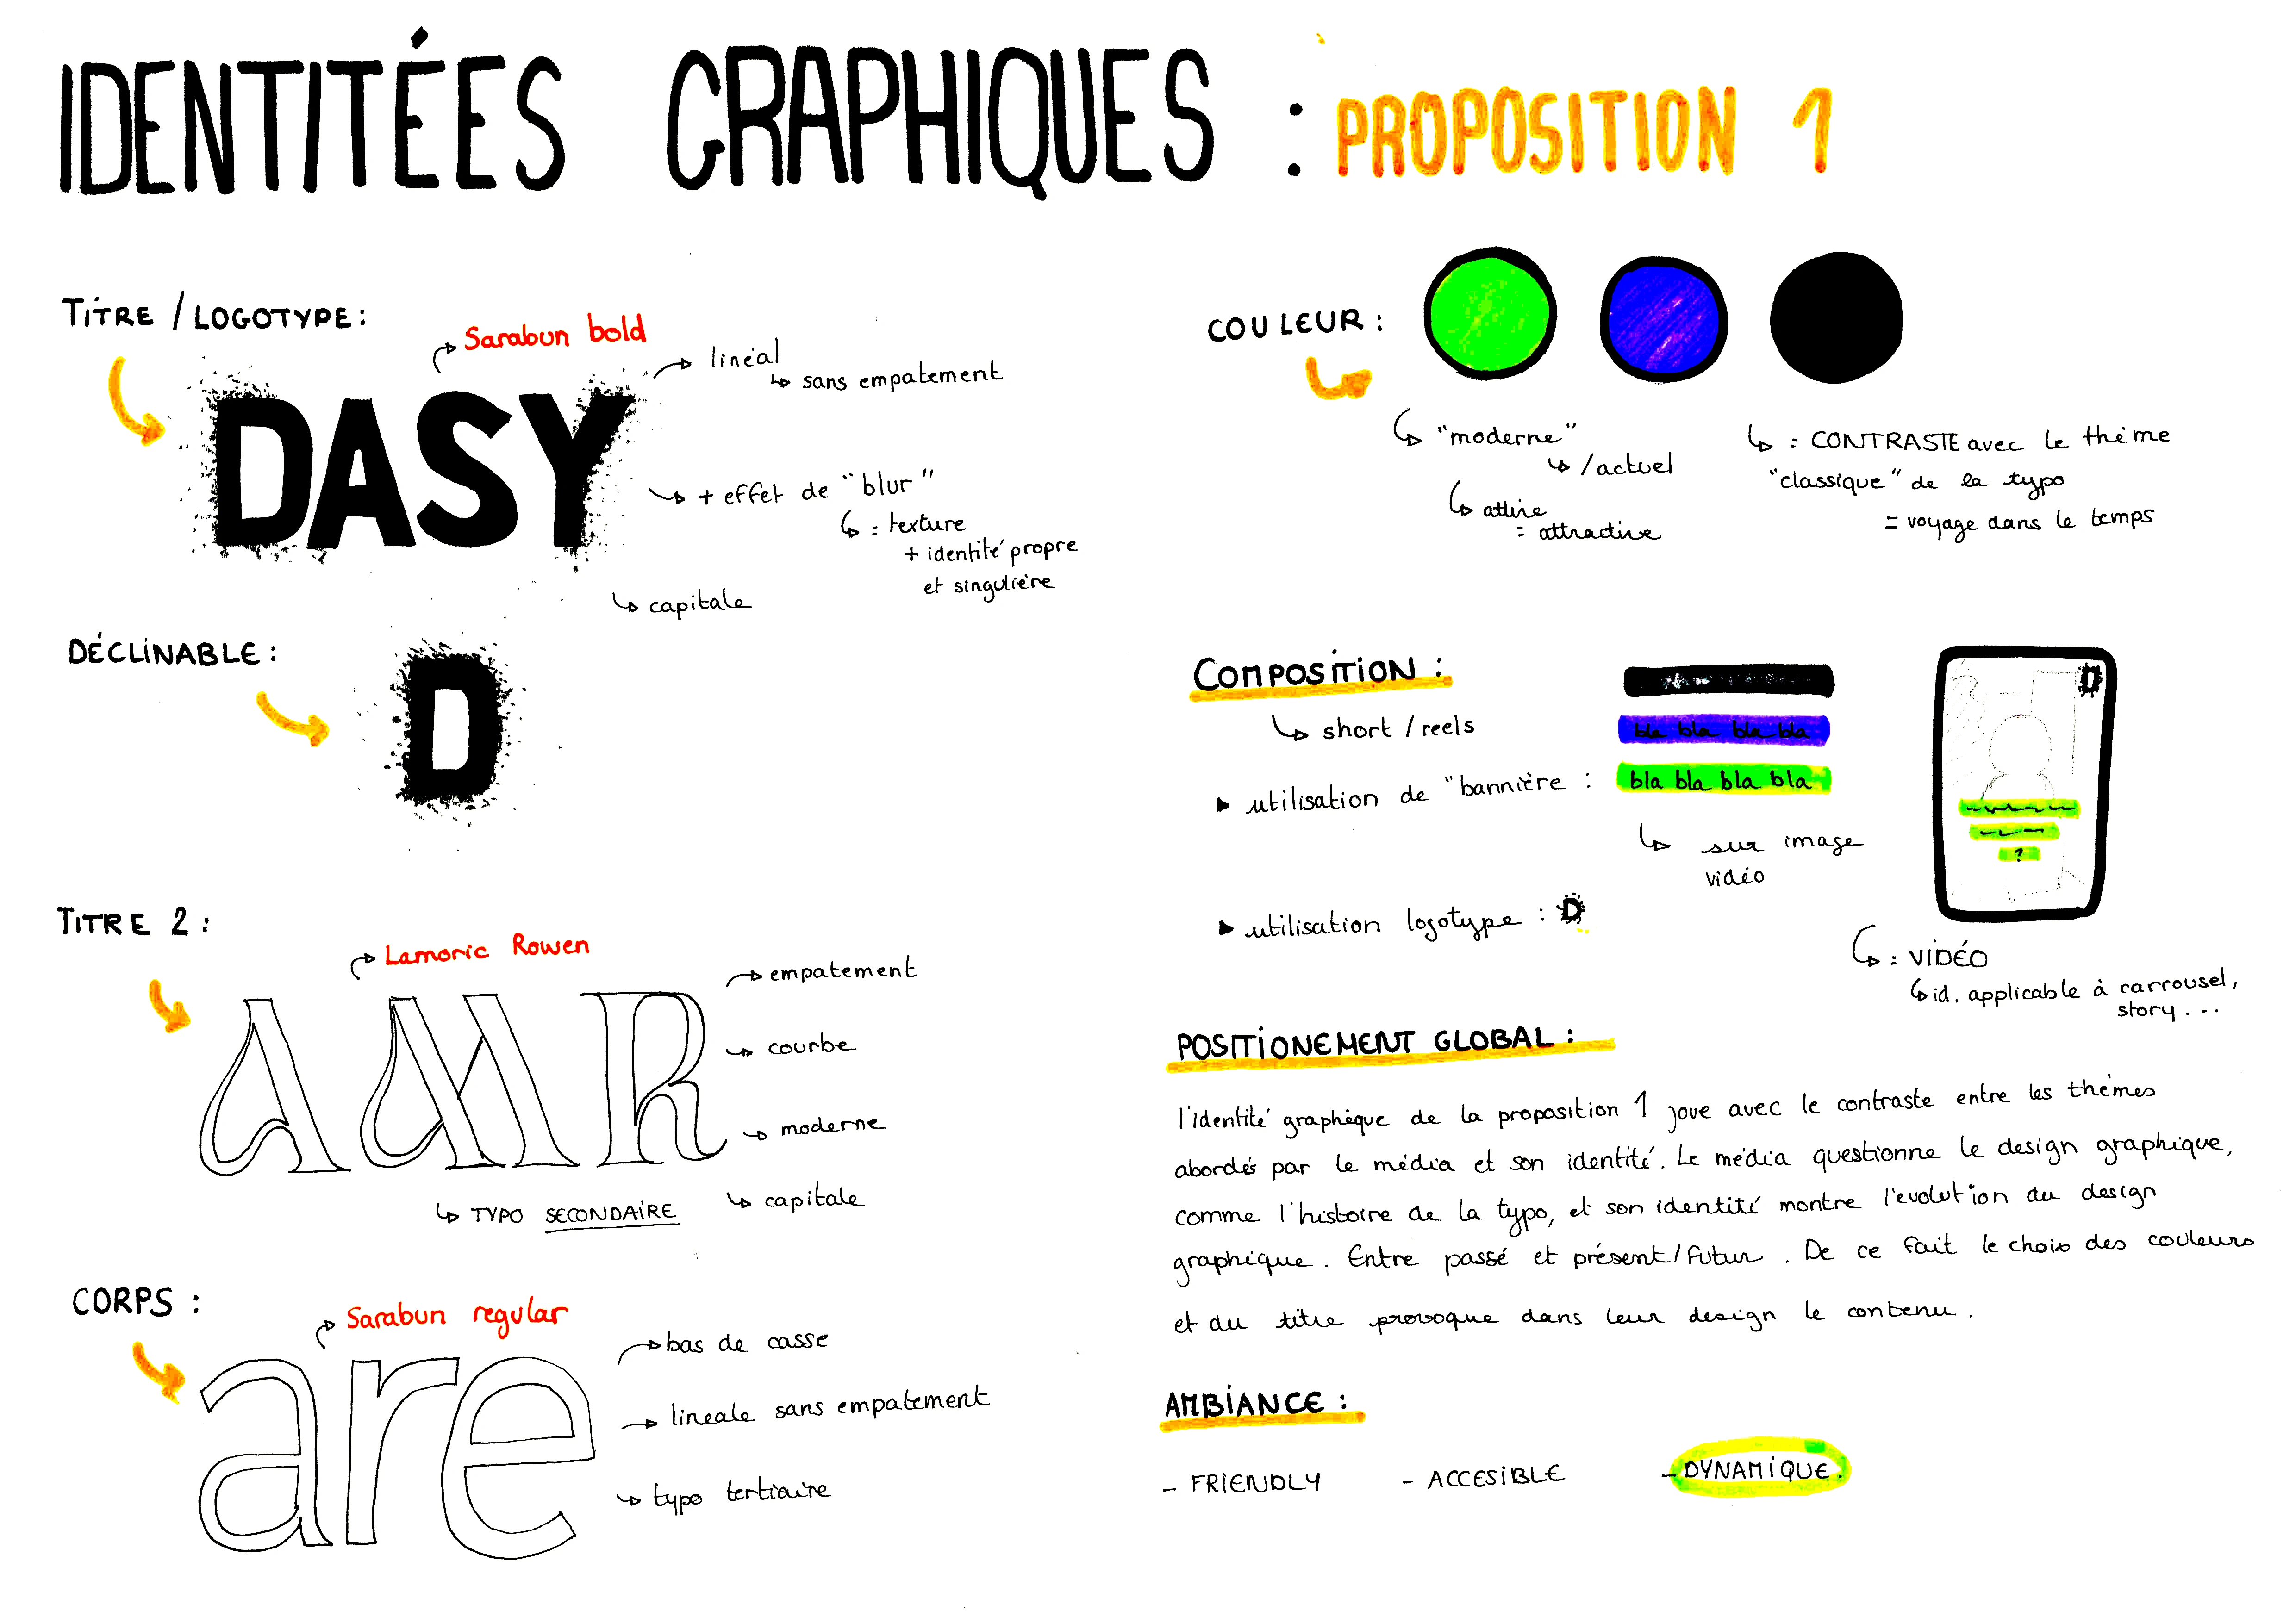 IDENTITÉES GRAPHIQUES : PROPOSITION 1
TITRE / LOGOTYPE :
Sarabun bold
linéal
sans empatement
DASY
+ effet de "blur"
= texture
+ identité propre
et singulière
capitale
DÉCLINABLE :
D
TITRE 2 :
Lamoric Rowen
empatement
AMR
courbe
moderne
capitale
TYPO SECONDAIRE
CORPS :
Sarabun regular
bas de casse
are
lineale sans empatement
typo tertiaire
COULEUR :
"moderne"
/actuel
attire
= attractive
= CONTRASTE avec le thème
"classique" de la typo
= voyage dans le temps
COMPOSITION :
short / reels
bla bla bla bla
utilisation de "bannière :
bla bla bla bla
sur image
vidéo
utilisation logotype : D
D
?
= VIDÉO
id. applicable à carrousel,
story...
POSITIONEMENT GLOBAL :
l'identité graphique de la proposition 1 joue avec le contraste entre les thèmes
abordés par le média et son identité. Le média questionne le design graphique,
comme l'histoire de la typo, et son identité montre l'evolution du design
graphique. Entre passé et présent/futur. De ce fait le choix des couleurs
et du titre provoque dans leur design le contenu.
AMBIANCE :
- FRIENDLY - ACCESIBLE - DYNAMIQUE.